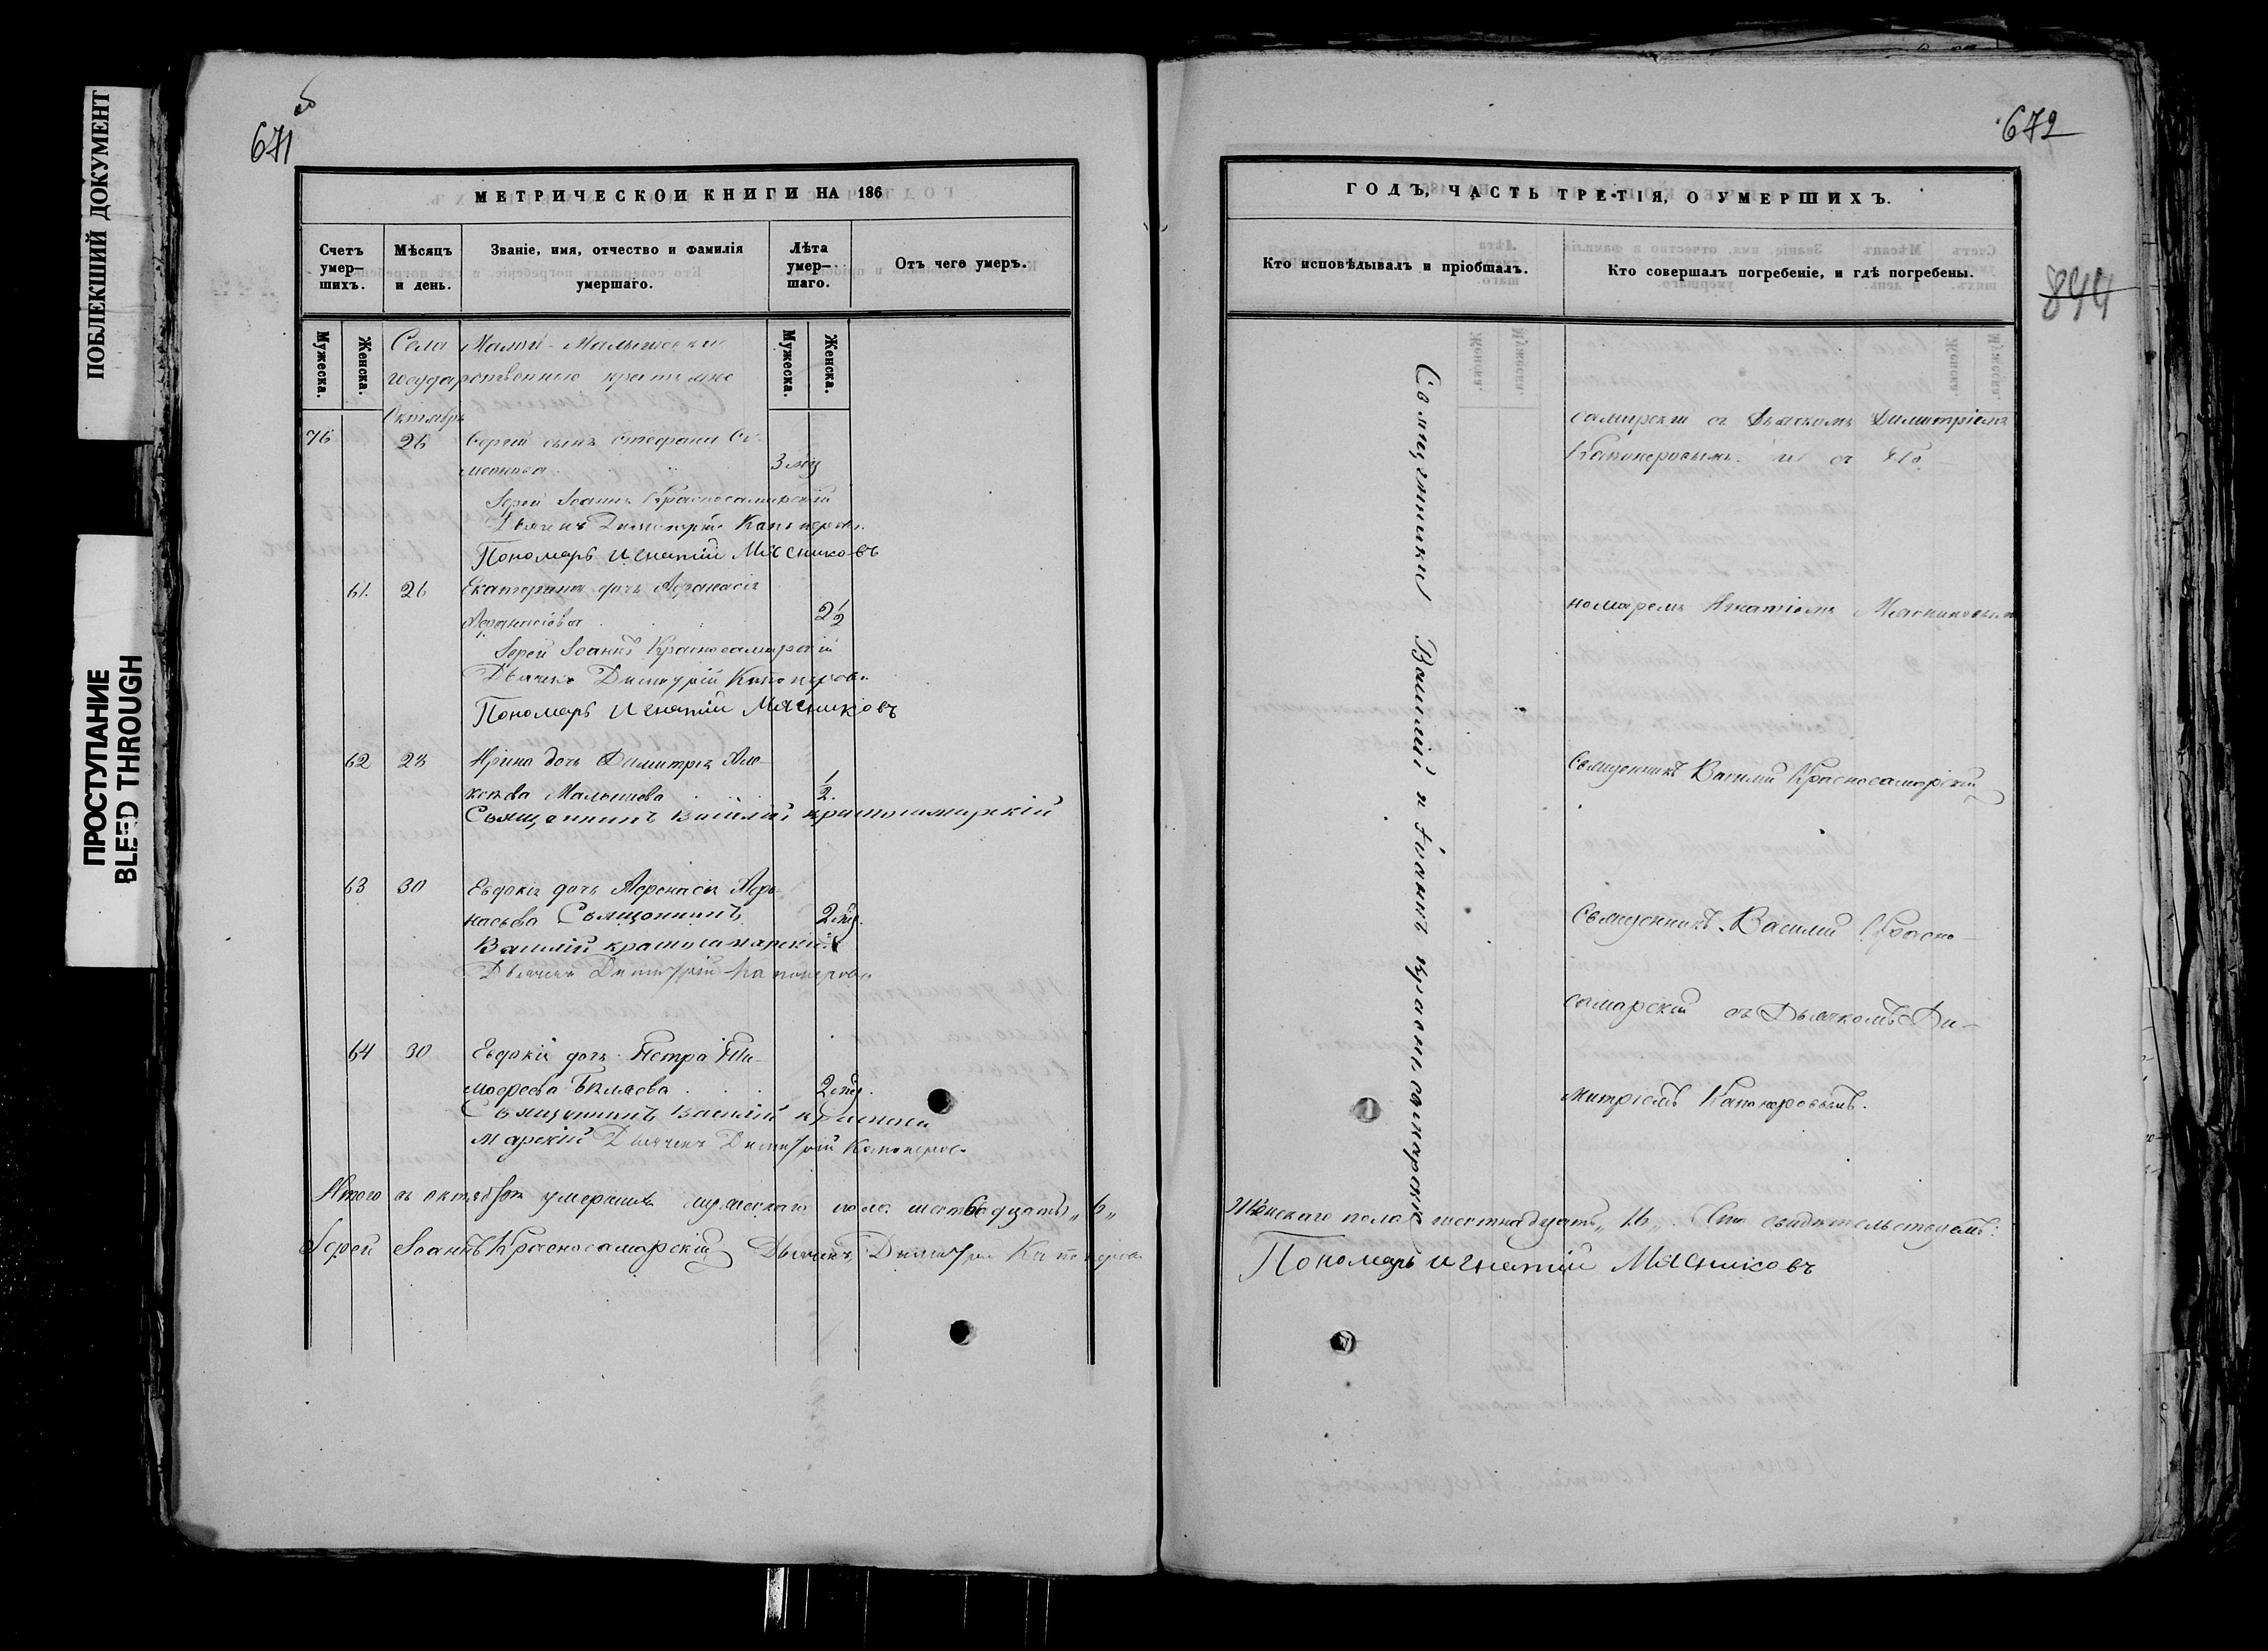 ПОБЛЕКШИЙ ДОКУМЕНТ
ПРОСТУПАНИЕ
BLEED THROUGH
671
МЕТРИЧЕСКОЙ КНИГИ НА 186
Счетъ умер–шихъ.
Мѣсяцъ и день.
Званіе, имя, отчество и фамилія умершаго.
Лѣта умер–шаго.
Отъ чего умеръ.
Мужеска.
Женска.
Мужеска.
Женска.
Села Малой-Малышевки
государственные крестьяне
Октябрь
76 26 Сергей сынъ Стефана Си-
меонова 3 мѣц
Іерей Іоаннъ Красносамарскій
Дьячекъ Димитрій Капонеровъ
Пономарь Игнатій Мясниковъ
61. 26 Екатерина дочь Афанасія
Афанасіева 2½
Іерей Іоаннъ Красносамарскій
Дьячекъ Димитрій Капонеровъ
Пономарь Игнатій Мясниковъ
62 28 Ирина дочь Димитрія
Малышева ½.
Священникъ Василій Красносамарскій
63 30 Евдокія дочь Афанасія Афа-
насьева Священникъ 2 нед.
Василій Красносамарскій
Дьячекъ Димитрій Капонеровъ
64 30 Евдокія дочь Петра Ти-
мофеева Бѣляева 2 нед.
Священникъ Василій Красноса
марскій Дьячекъ Димитрій Капонеровъ
Итого въ октябрѣ умершихъ мужескаго пола „6„
Іерей Іоаннъ Красносамарскій Дьячекъ Димитрій Капонеровъ
672
844
ГОДЪ, ЧАСТЬ ТРЕТІЯ, О УМЕРШИХЪ.
Кто исповѣдывалъ и пріобщалъ.
Кто совершалъ погребеніе, и гдѣ погребены.
Священники Василий и Іоаннъ Красносамарскіе
самарскій съ Дьячкомъ Димитріемъ
Капонеровымъ и съ По-
номаремъ Игнатіемъ Мясниковымъ
Священникъ Василий Красносамарскій
Священникъ Василий Красно-
самарскій съ Дьячкомъ Ди-
митріемъ Капонеровымъ.
Женскаго пола шестнадцать „16„. Въ свидѣтельствуемъ:
Пономарь Игнатій Мясниковъ